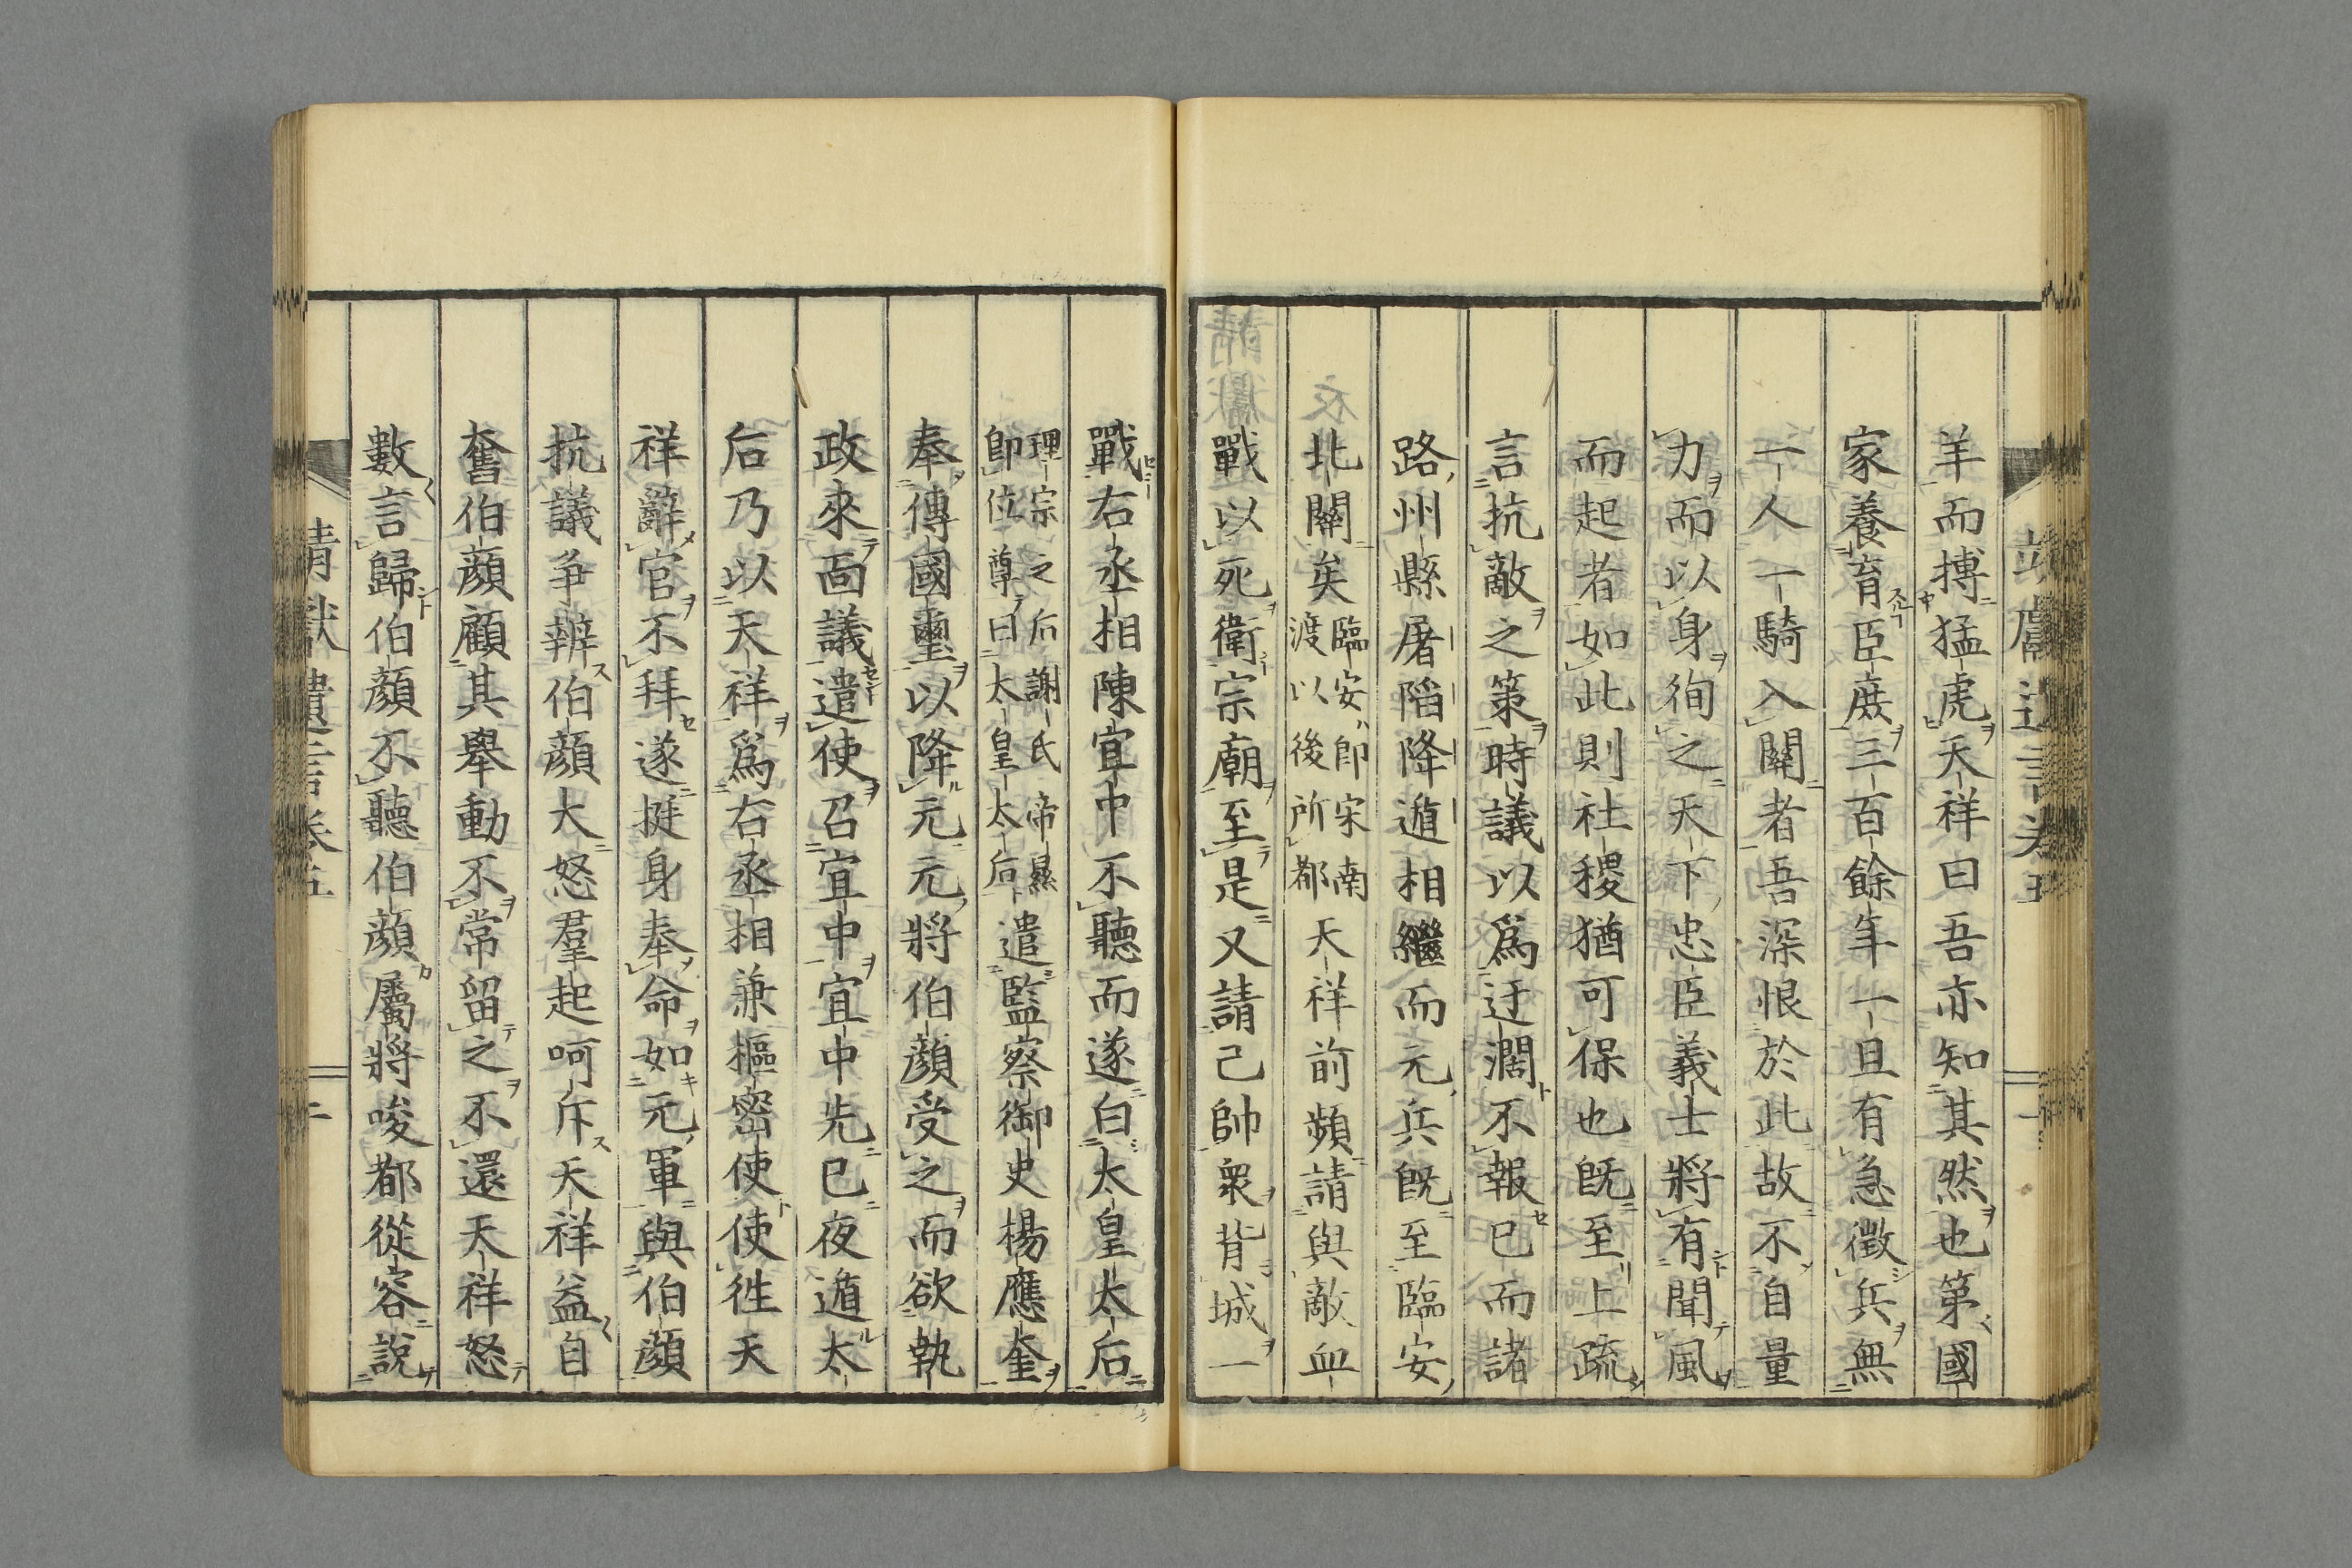 羊而搏猛虎天祥曰吾亦知其然也第國
家養育臣庶三百餘年一旦有急徵兵無
一人一騎入關者吾深恨於此故不自量
力而以身徇之天下忠臣義士將有聞風
而起者如此則社稷猶可保也既至上疏
言抗敵之策時議以爲迂濶不報已而諸
路州縣屠陷降遁相繼而元兵既至臨安
北關矣臨安即宋南渡以後所都天祥前頻請與敵血
戰以死衛宗廟至是又請己帥衆背城一
戰右丞相陳宜中不聽而遂白太皇太后
理宗之后謝氏帝㬎即位尊曰太皇太后遣監察御史楊應奎
奉傳國璽以降元元將伯顔受之而欲執
政來面議遣使召宜中宜中先已夜遁太
后乃以天祥爲右丞相兼樞密使使徃天
祥辭官不拜遂挺身奉命如元軍與伯顔
抗議爭辨伯顔大怒羣起呵斥天祥益自
奮伯顔顧其舉動不常留之不還天祥怒
數言歸伯顔不聽伯顔屬將唆都從容説
靖獻遺言卷五
二